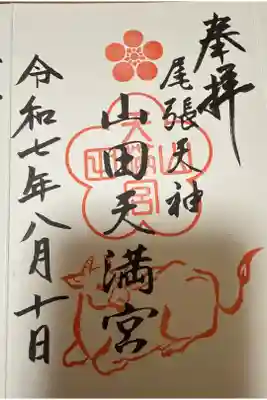 奉拝
尾張天神
山田天満宮
令和七年八月十日